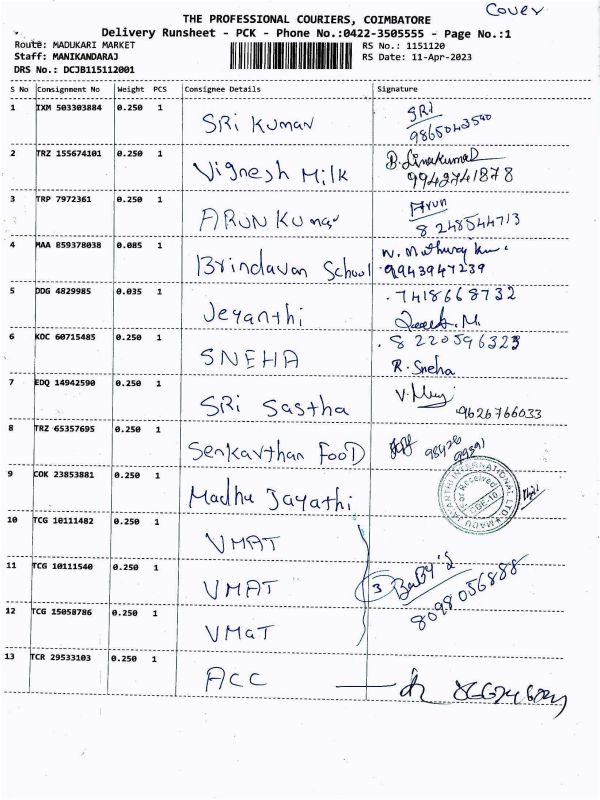 Cover
THE PROFESSIONAL COURIERS, COIMBATORE
Delivery Runsheet - PCK - Phone No.:0422-3505555 - Page No.:1
Route: MADUKARI MARKET RS No.: 1151120
Staff: MANIKANDARAJ RS Date: 11-Apr-2023
DRS No.: DCJB115112001
S No Consignment No Weight PCS Consignee Details Signature
1 IXM 503303884 0.250 1 SRi KUMAR SRi
9865043500
2 TRZ 155674101 0.250 1 Vignesh Milk
9942741878
3 TRP 7972361 0.250 1 ARUN KUmar Arun
8248544713
4 MAA 859378038 0.085 1 Brindavan School
9943947239
5 DDG 4829985 0.035 1 Jeyanthi 7418668732
6 KDC 60715485 0.250 1 SNEHA 8220596323
R. Sneha
7 EDQ 14942590 0.250 1 SRi Sastha
9626766033
8 TRZ 65357695 0.250 1 Senkavthan FooD 98426
99391
9 COK 23853881 0.250 1 Madhu Jayathi
10 TCG 10111482 0.250 1 VMAT
11 TCG 10111540 0.250 1 VMAT 3
8098056888
12 TCG 15058786 0.250 1 VMaT
13 TCR 29533103 0.250 1 ACC